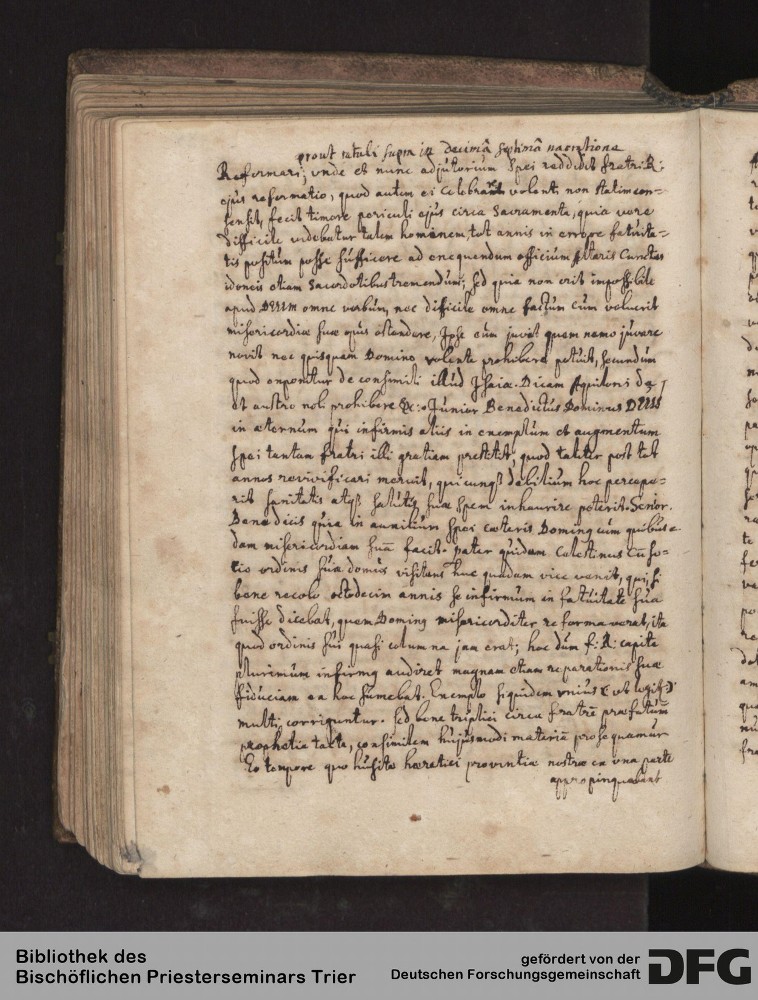 prout retuli supra in decimâ septimâ narratione
Reformari; unde et nunc adjutorium Spei reddidit fratri R:
ejus reformatio, quod autem ei celebrare volenti non statim con=
sensit, fecit timore periculi ejus circa Sacramenta, quia vere
difficile videbatur talem hominem, tot annis in errore fatuita=
tis positum posse sufficere ad exequendum officium Altaris cunctis
idoneis etiam Sacerdotibus tremendum; sed quia non erit impossibile
apud DEUM omne verbum, nec difficile omne factum cùm voluerit
misericordiæ suæ opus ostendere, Ipse eum juvat quem nemo juvare
novit nec quisquam Domino volente prohibere potuit, secundum
quod exponitur de consimili illud Isaiæ. Dicam Aquiloni da,
et austro noli prohibere &c: Junior Benedictus Dominus DEUS
in æternum qui infirmis aliis in exemplum et augmentum
spei tantam fratri illi gratiam prestitit, quod taliter post tot
annos revivificari meruit, quicunq3 debilium hoc percepe=
rit sanitatis atq3 salutis suæ spem inhaurire poterit. Senior.
Benedicis quia in auxilium spei cæteris Dominus cum quibus=
dam misericordiam suā facit. pater quidam Celestinus cū so=
cio ordinis sui domos visitans huc quadam vice venit, qui, si
bene recolo octodecim annis se infirmum in fatuitate suâ
fuisse dicebat, quem Dominus misericorditer reformaverat, ita
quod ordinis sui quasi columna jam erat; hoc dum f: R: capite
plurimum infirmus audiret magnam etiam reparationis suæ
fiduciam ex hoc sumebat. Exemplo siquidem unius (ut legit~)
multi corriguntur. sed bene triplici circa fratrē præfatum
prophetia tacta, consimilem hujusmodi materiā prosequamur
Eo tempore quo husitæ hæretici provintiæ nostræ ex una parte
appropinquabant
Bibliothek des
Bischöflichen Priesterseminars Trier
gefördert von der
Deutschen Forschungsgemeinschaft
DFG